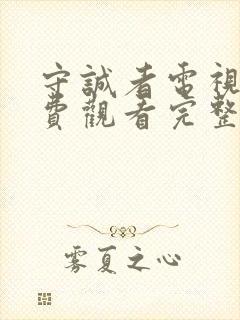 守誠者電視
費觀看完整
雾夏之心